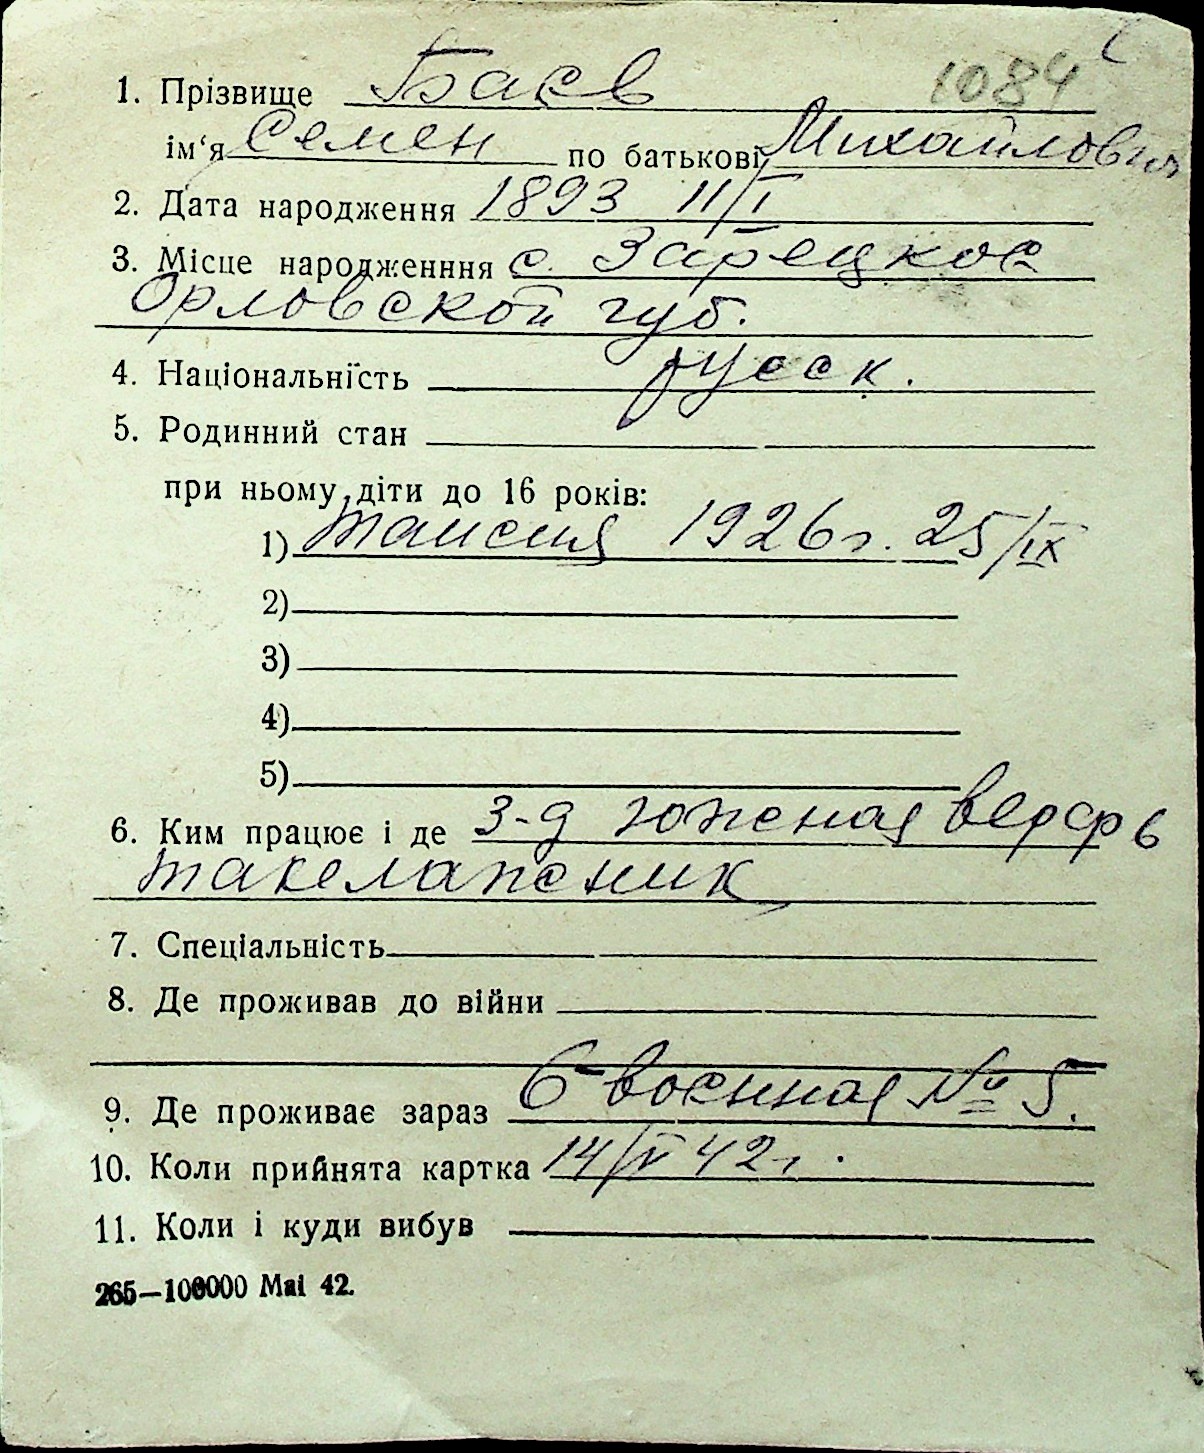 1084
1. Прізвище Баев
ім‘я Семен по батькові Михайлович
2. Дата народження 1893 11/I
3. Місце народженння с. Зарецкое
Орловской губ.
4. Національність русск.
5. Родинний стан
при ньому діти до 16 років:
1) Таисия 1926г. 25/IX
2)
3)
4)
5)
6. Ким працює і де з-д южная верфь
такелажник
7. Спеціальність
8. Де проживав до війни
9. Де проживає зараз 6 военная № 5.
10. Коли прийнята картка 14/IV 42г.
11. Коли і куди вибув
265—100000 Mai 42.